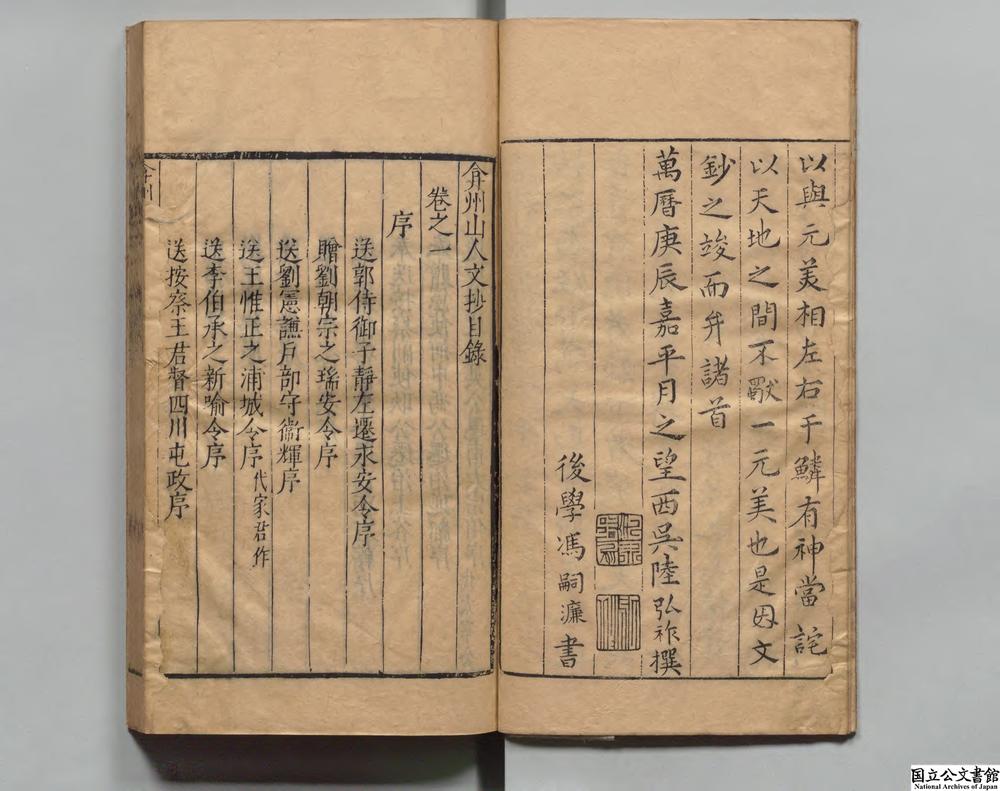 以與元美相左右于鱗有神當詫
以天地之間不獸一元美也是因文
鈔之竣而弁諸首
萬曆庚辰嘉平月之望西吳陸弘祚撰
後學馮嗣濂書
弇州山人文抄目錄
卷之一
序
送郭侍御子靜左遷永安令序
贈劉朝宗之瑞安令序
送劉憲謙戶部守衞輝序
送王惟正之浦城令序代家君作
送李伯承之新喻令序
送按察王君督四川屯政序
弇州
国立公文書館
National Archives of Japan